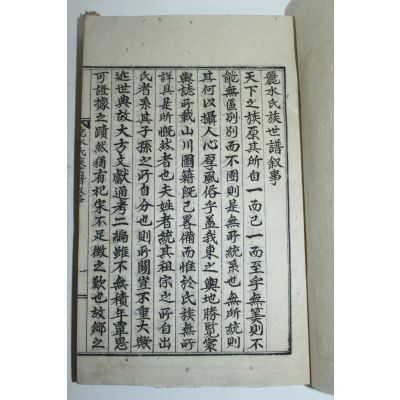 麗水氏族世譜叙事
天下之族原其所自一而已一而至乎無筭則不
能無區別別而不圖則是無所統系也無所統則
其何以攝人心厚風俗乎盖我東之輿地勝覧寔
輿誌所載山川圖籍旣已畧備而惟於氏族無所
詳具是所慨然者也夫姓者統其祖宗之所自出
氏者系其子孫之所自分也則所關豈不重大歟
近世典故大方文獻通考二編雖不無積年覃思
可證據之蹟然猶有杞宋不足徵之歎也故鄉之